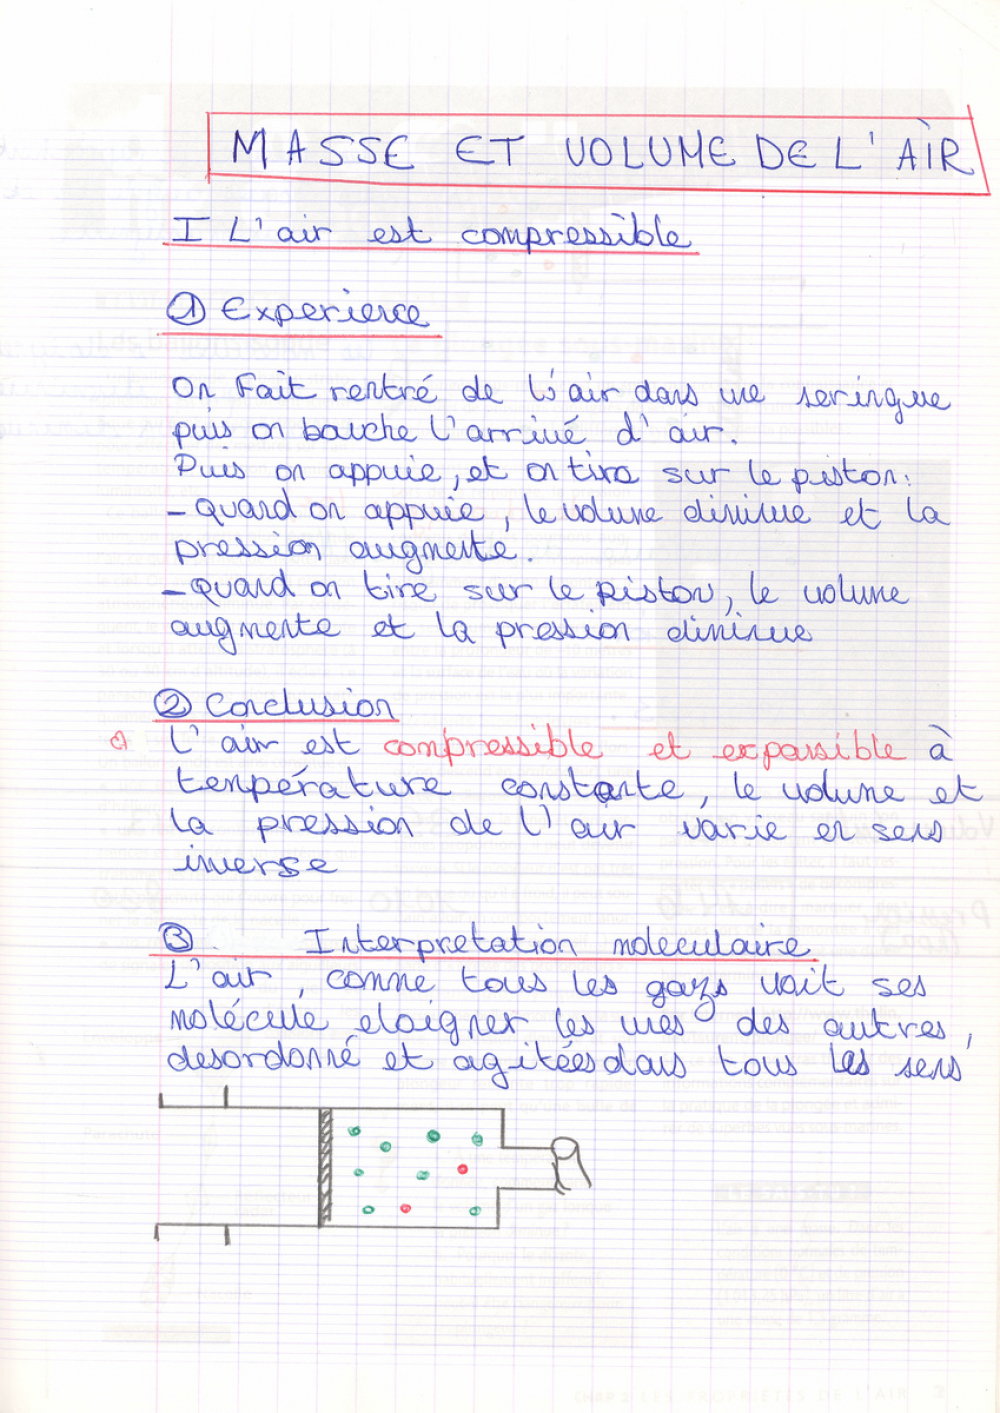 MASSE ET VOLUME DE L'AIR
I L'air est compressible
① Experience
On Fait rentré de l'air dans une seringue
puis on bouche l'arrivé d'air.
Puis on appuie, et on tire sur le piston:
- quand on appuie, le volume diminue et la
pression augmente.
- quand on tire sur le piston, le volume
augmente et la pression diminue
② Conclusion
L'air est compressible et expansible à
température constante, le volume et
la pression de l'air varie en sens
inverse
③ Interpretation moleculaire
L'air, comme tous les gazs voit ses
molécule eloigner les unes des autres,
desordonné et agitées dans tous les sens